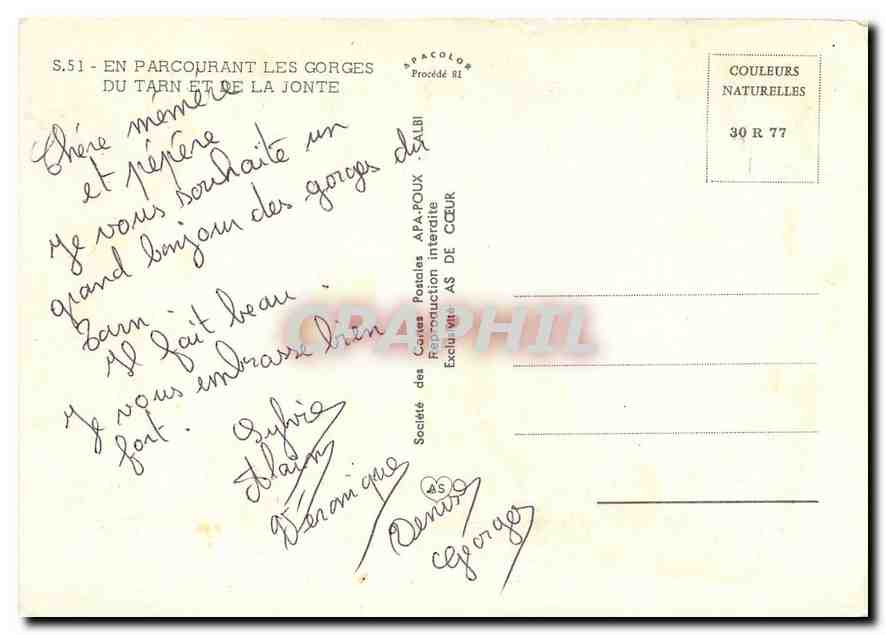 S.51 - EN PARCOURANT LES GORGES
DU TARN ET DE LA JONTE
APACOLOR
Procédé 81
COULEURS
NATURELLES
30 R 77
Chére mémére
et pépére
Je vous souhaite un
grand bonjour des gorges du
Tarn.
Il fait beau.
Je vous embrasse bien
fort.
Sylvie
Alain
Véronique
Denise
Georges
Société des Cartes Postales APA-POUX - ALBI
Reproduction interdite
Exclusivité AS DE CŒUR
AS
CPAPHIL